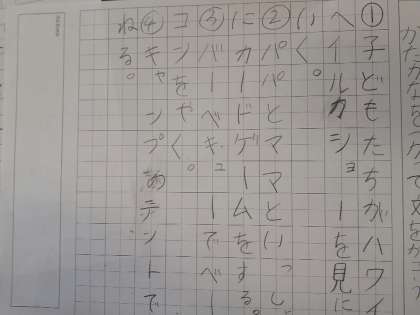 かたかなを って文をか
①子どもたちがハワイ
へイルカショーを見に
いく。
②パパとママといっし
にカードゲームをする。
③バーベキューでベー
コンをやく。
④キャンプ テントで
ねる。